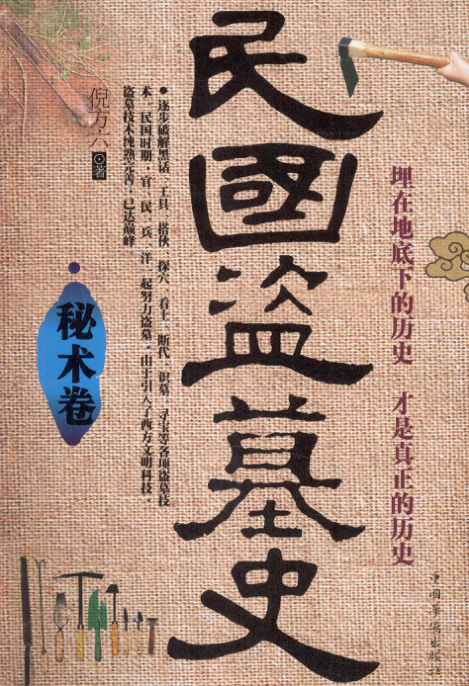 埋在地底下的历史 才是真正的历史
中國華僑出版社
民國盗墓史
●逐步破解黑话、工具、搭伙、探穴、看土、断代、识墓、寻宝等各项盗墓技
术。民国时期，官、民、兵、洋一起努力盗墓，由于引入了西方文明科技，
盗墓技术纯熟完善，已达巅峰。
倪方六 ◎著
秘术卷